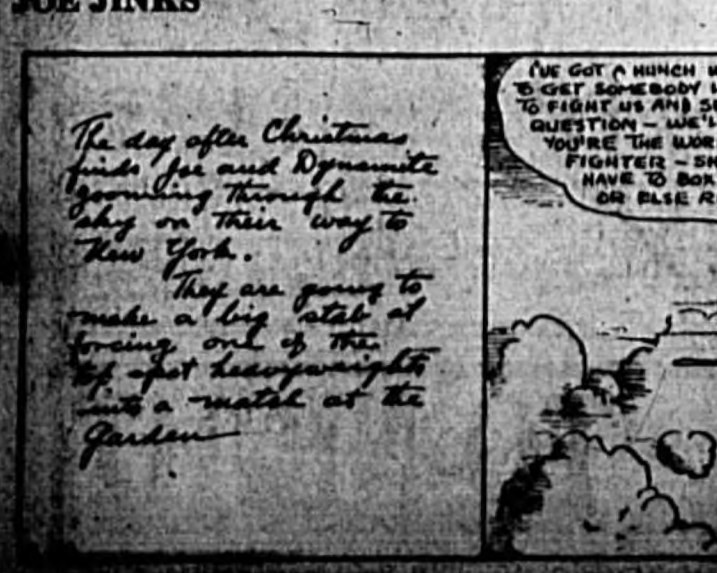 JOE JINKS
The day after Christmas
finds Joe and Dynamite
zooming through the
sky on their way to
New York.
They are going to
make a big stab at
forcing one of the
top spot heavyweights
into a match at the
Garden
I'VE GOT A HUNCH
TO GET SOMEBODY
TO FIGHT US AND
QUESTION - WE'L
YOU'RE THE WOR
FIGHTER - SH
HAVE TO BOX
OR ELSE R